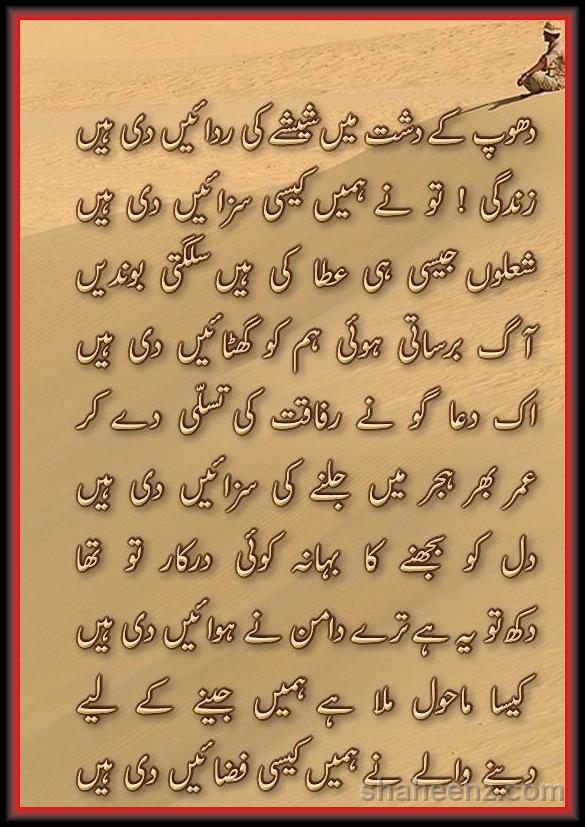 دھوپ کے دشت میں شیشے کی ردائیں دی ہیں
زندگی ! تو نے ہمیں کیسی سزائیں دی ہیں
شعلوں جیسی ہی عطا کی ہیں سلگتی بوندیں
آگ برساتی ہوئی ہم کو گھٹائیں دی ہیں
اک دعا گو نے رفاقت کی تسلّی دے کر
عمر بھر ہجر میں جلنے کی سزائیں دی ہیں
دل کو بجھنے کا بہانہ کوئی درکار تو تھا
دکھ تو یہ ہے ترے دامن نے ہوائیں دی ہیں
کیسا ماحول ملا ہے ہمیں جینے کے لیے
دینے والے نے ہمیں کیسی فضائیں دی ہیں
shaheenz.com